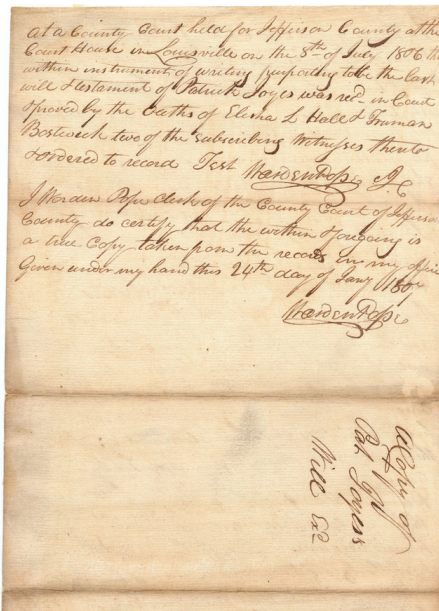 At a County Court held for Jefferson County at the
Court House in Louisville on the 8th of July 1806 th
within instrument of writing purporting to be the last
will & testament of Patrick Joyes was recd in Court
& proved by the oaths of Elisha L Hall & Truman
Bostwick two of the subscribing witnesses thereto
& ordered to record Test Worden Pope
I Worden Pope clerk of the County Court of Jefferson
County do certify that the within & foregoing is
a true Copy taken from the record in my office
Given under my hand this 24th day of Jany 1807
Worden Pope
A Copy of
Pat Joyes's
Will Exd